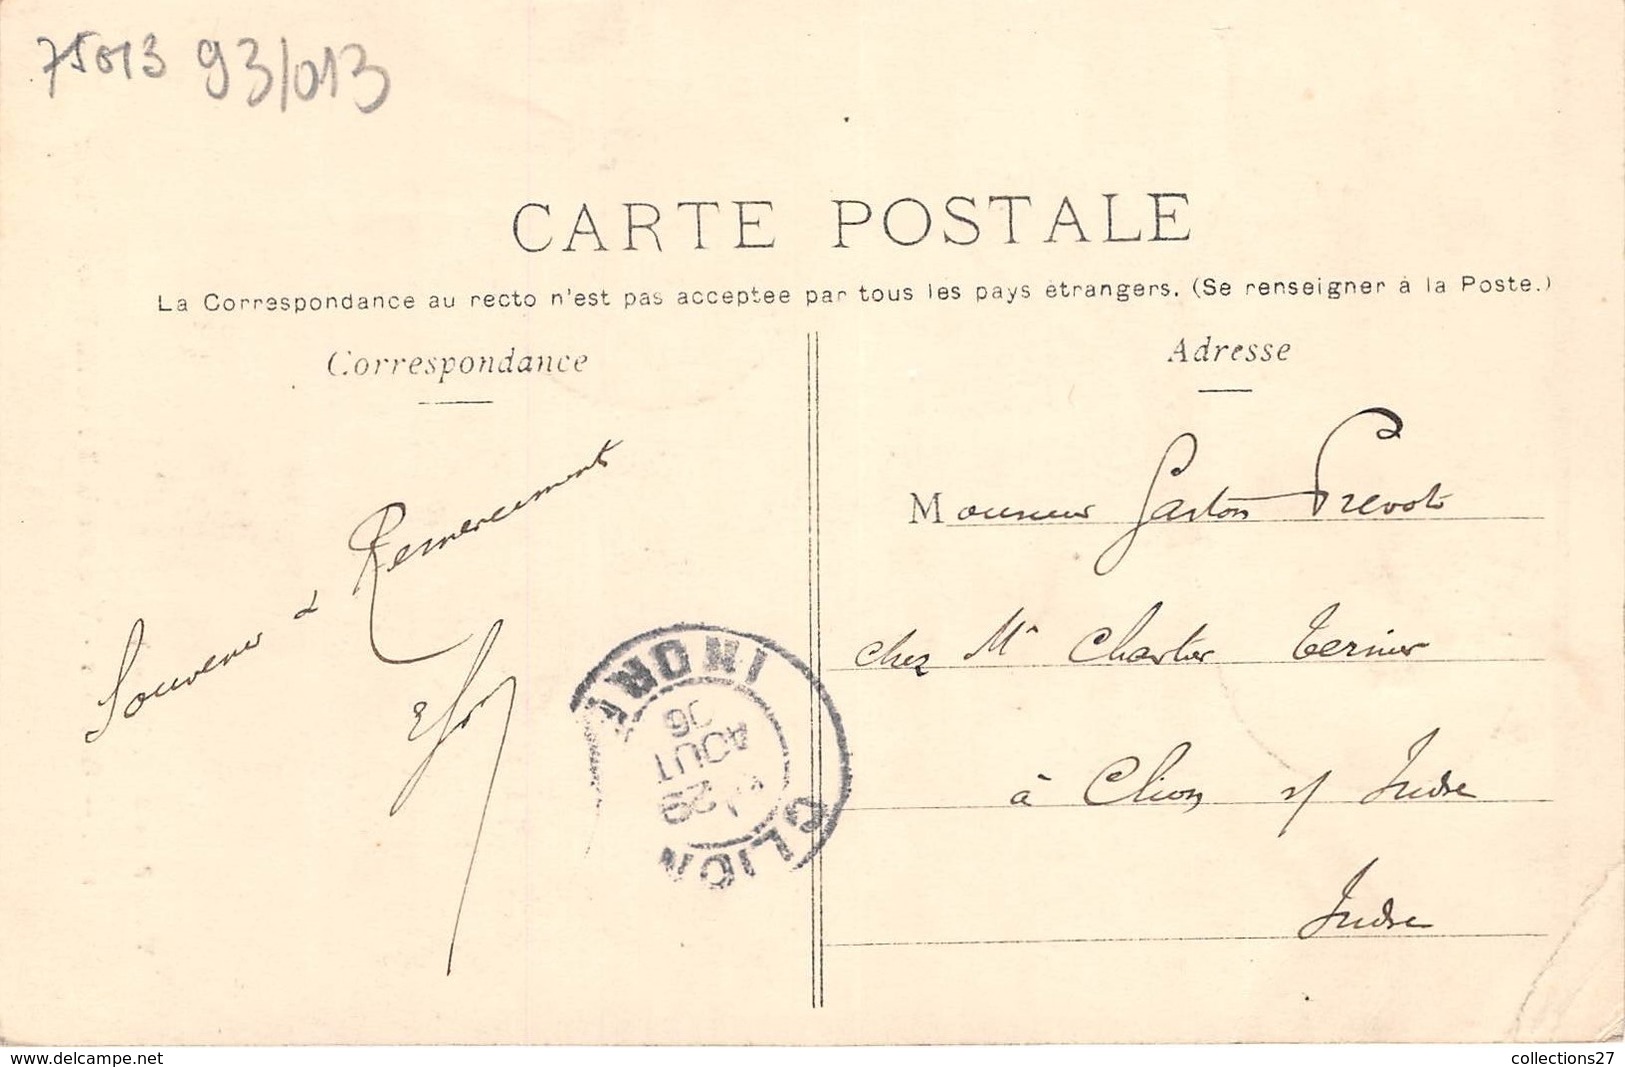 75013 93/013
CARTE POSTALE
La Correspondance au recto n'est pas acceptee par tous les pays étrangers. (Se renseigner à la Poste.)
Correspondance
Souvenir & Remerciements
Adresse
Monsieur Gaston Prevot
chez Mr Chartier
à Clion s/ Indre
Indre
CLION
29
AOUT
06
INDRE
www.delcampe.net
collections27